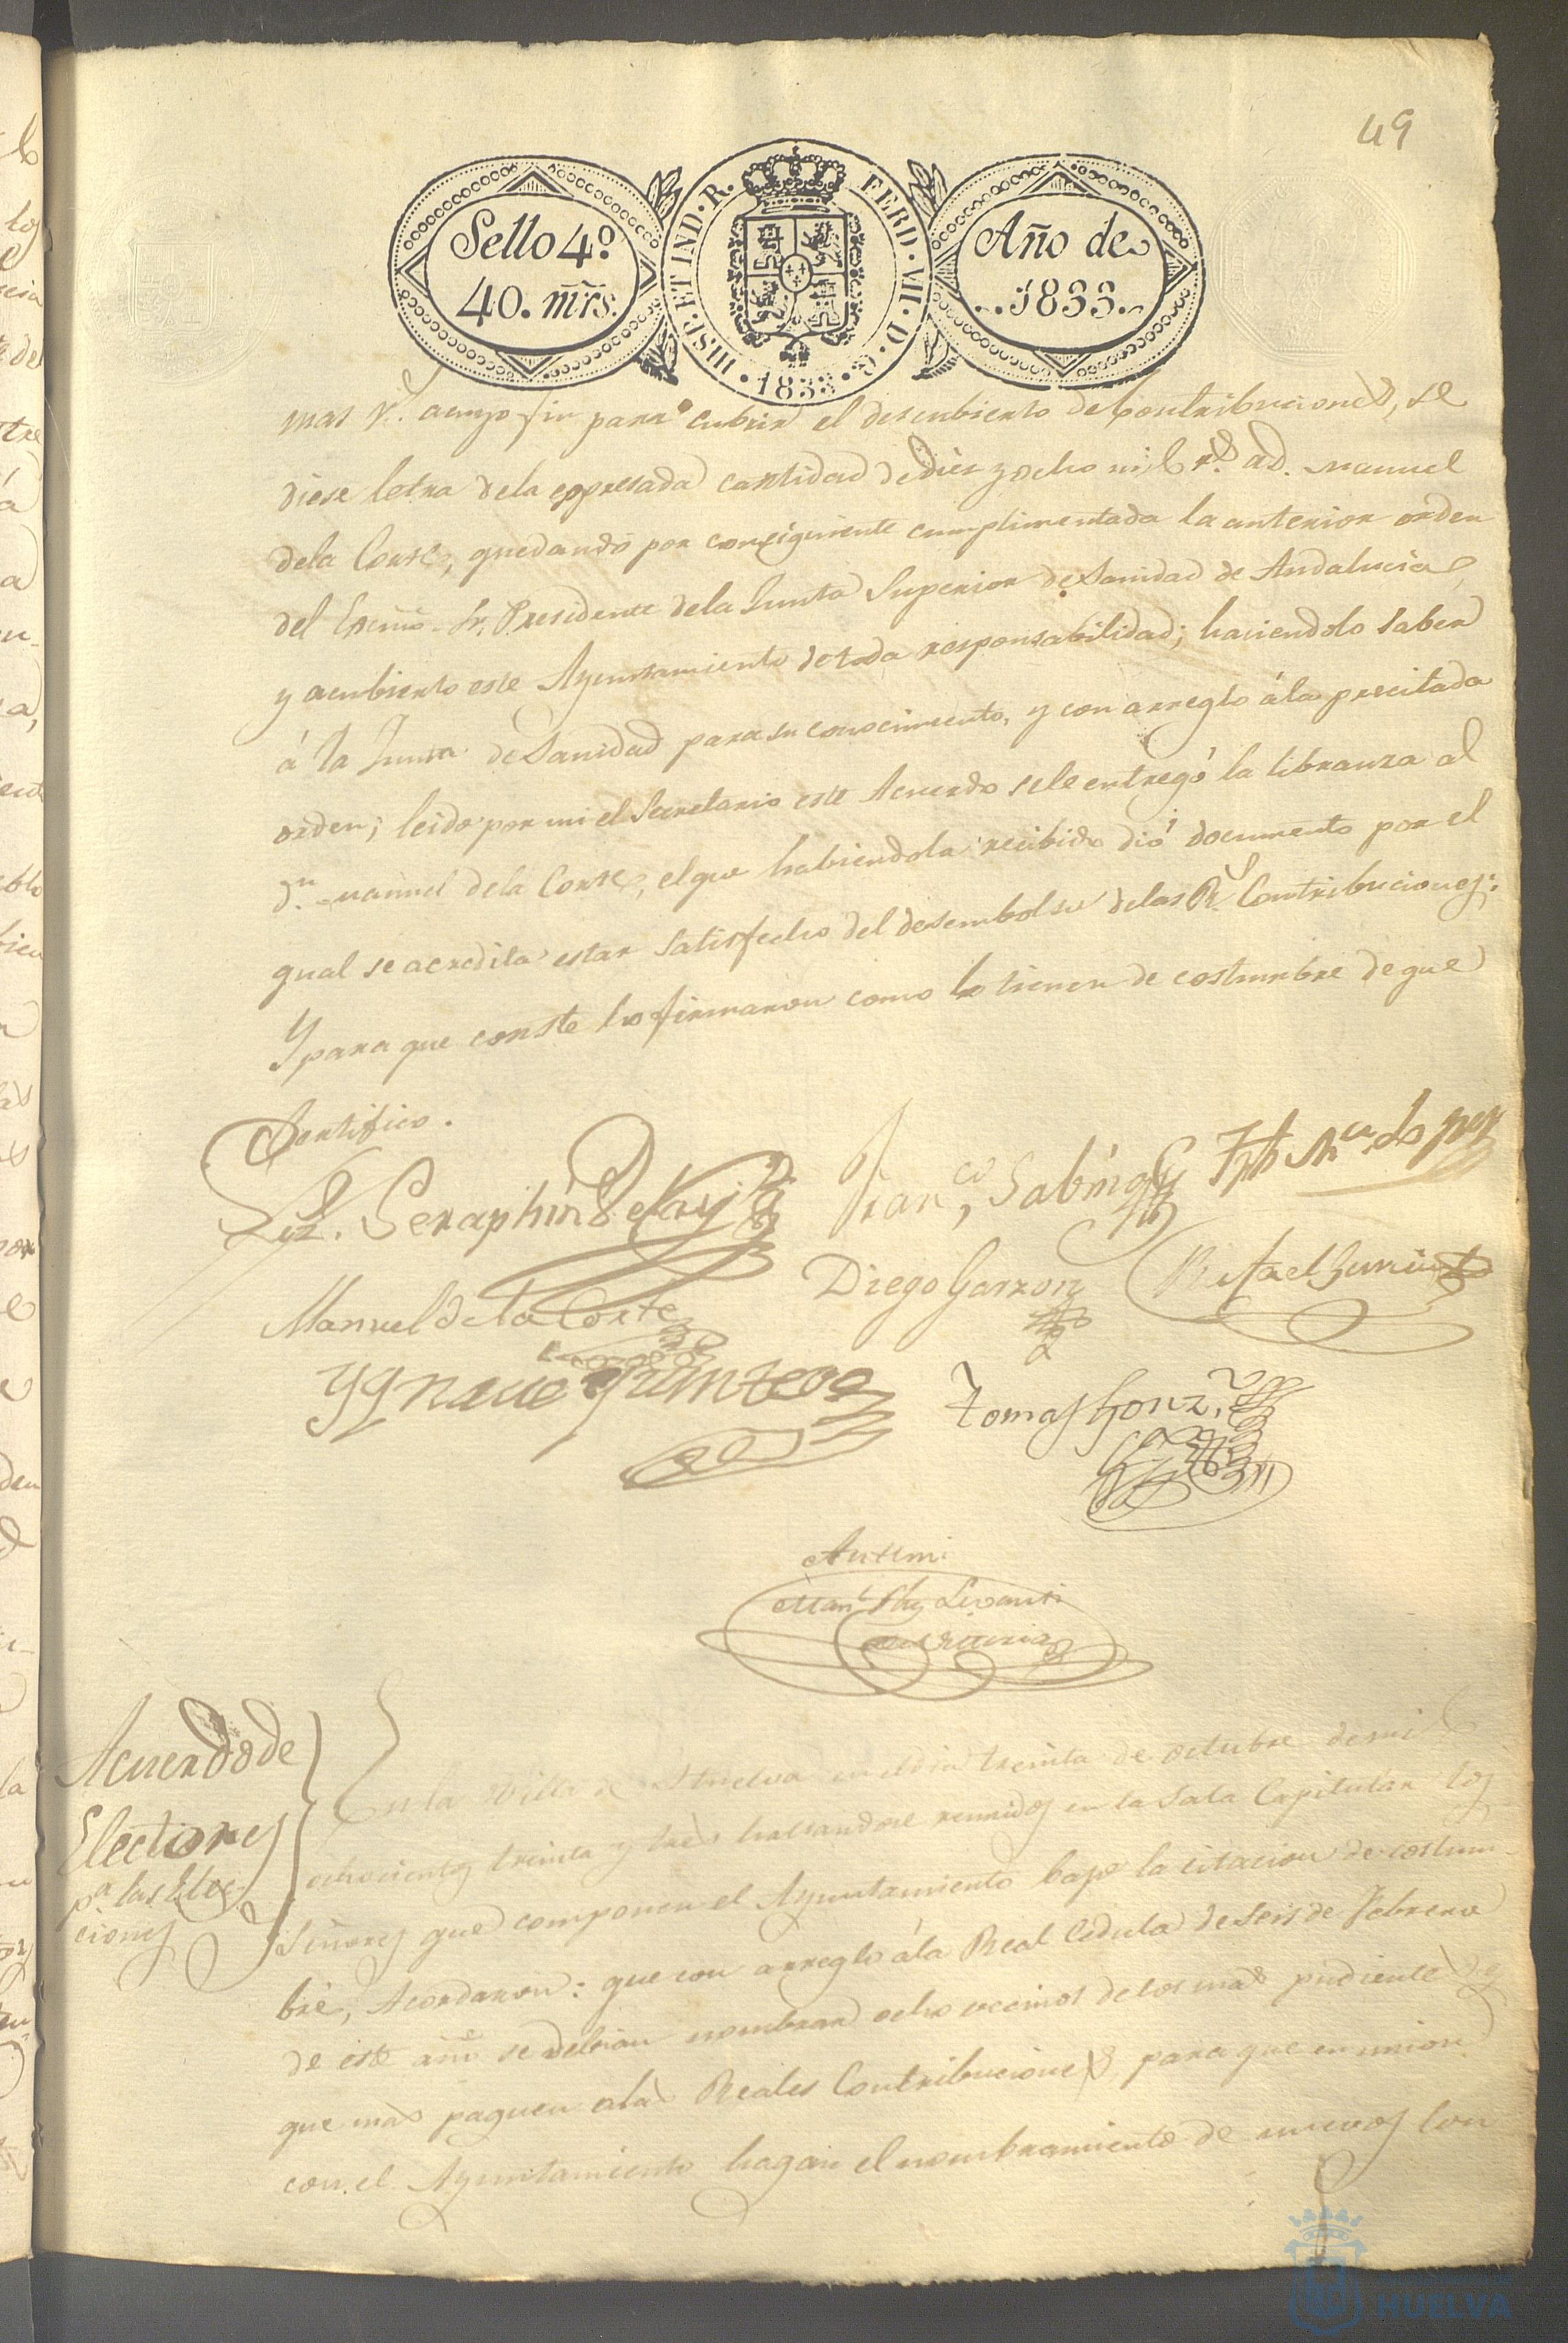 49
Sello 4º
40. mrs.
HISP. ET IND. R. FERD. VII. D. G. 1833
Año de
1833
mas rs. a cuyo fin para cubrir el descubierto de Contribuciones, se
diese letra dela expresada cantidad de diez y ocho mil rs. a D. Manuel
dela Corte, quedando por consiguiente cumplimentada la anterior orden
del Excmo. Sr. Presidente dela Junta Superior de Sanidad de Andalucia,
y acubierto este Ayuntamiento detoda responsabilidad; haciendolo saber
á la Junta de Sanidad para su conocimiento, y con arreglo ála precitada
orden; leido por mi el Secretario este Acuerdo sele entregó la libranza al
Dn. Manuel dela Corte, elque habiendola recibido dió documento por el
qual se acredita estar satisfecho del desembolso delas Rs. Contribuciones:
Y para que conste lo firmaron como lo tienen de costumbre de que
Certifico.
Liz. Seraphin De
Franco, Sabino
Lopez
Manuel de la Corte
Diego Garzon
Rafael
Ygnacio Quintero
Tomas Gonz.
Antemi
Manl.
Acuerdo de
Electores
pa. las Elec-
ciones
En la Villa de Huelva en el dia treinta de octubre de mil
ochocientos treinta y tres hallandose reunidos en la Sala Capitular los
Señores que componen el Ayuntamiento bajo la citacion de costum-
bre, Acordaron: que con arreglo ála Real Cedula de seis de Febrero
de este año se debian nombrar ocho vecinos de los mas pudientes y
que mas paguen alas Reales Contribuciones, para que en union
con el Ayuntamiento hagan el nombramiento de nuevos Con
HUELVA